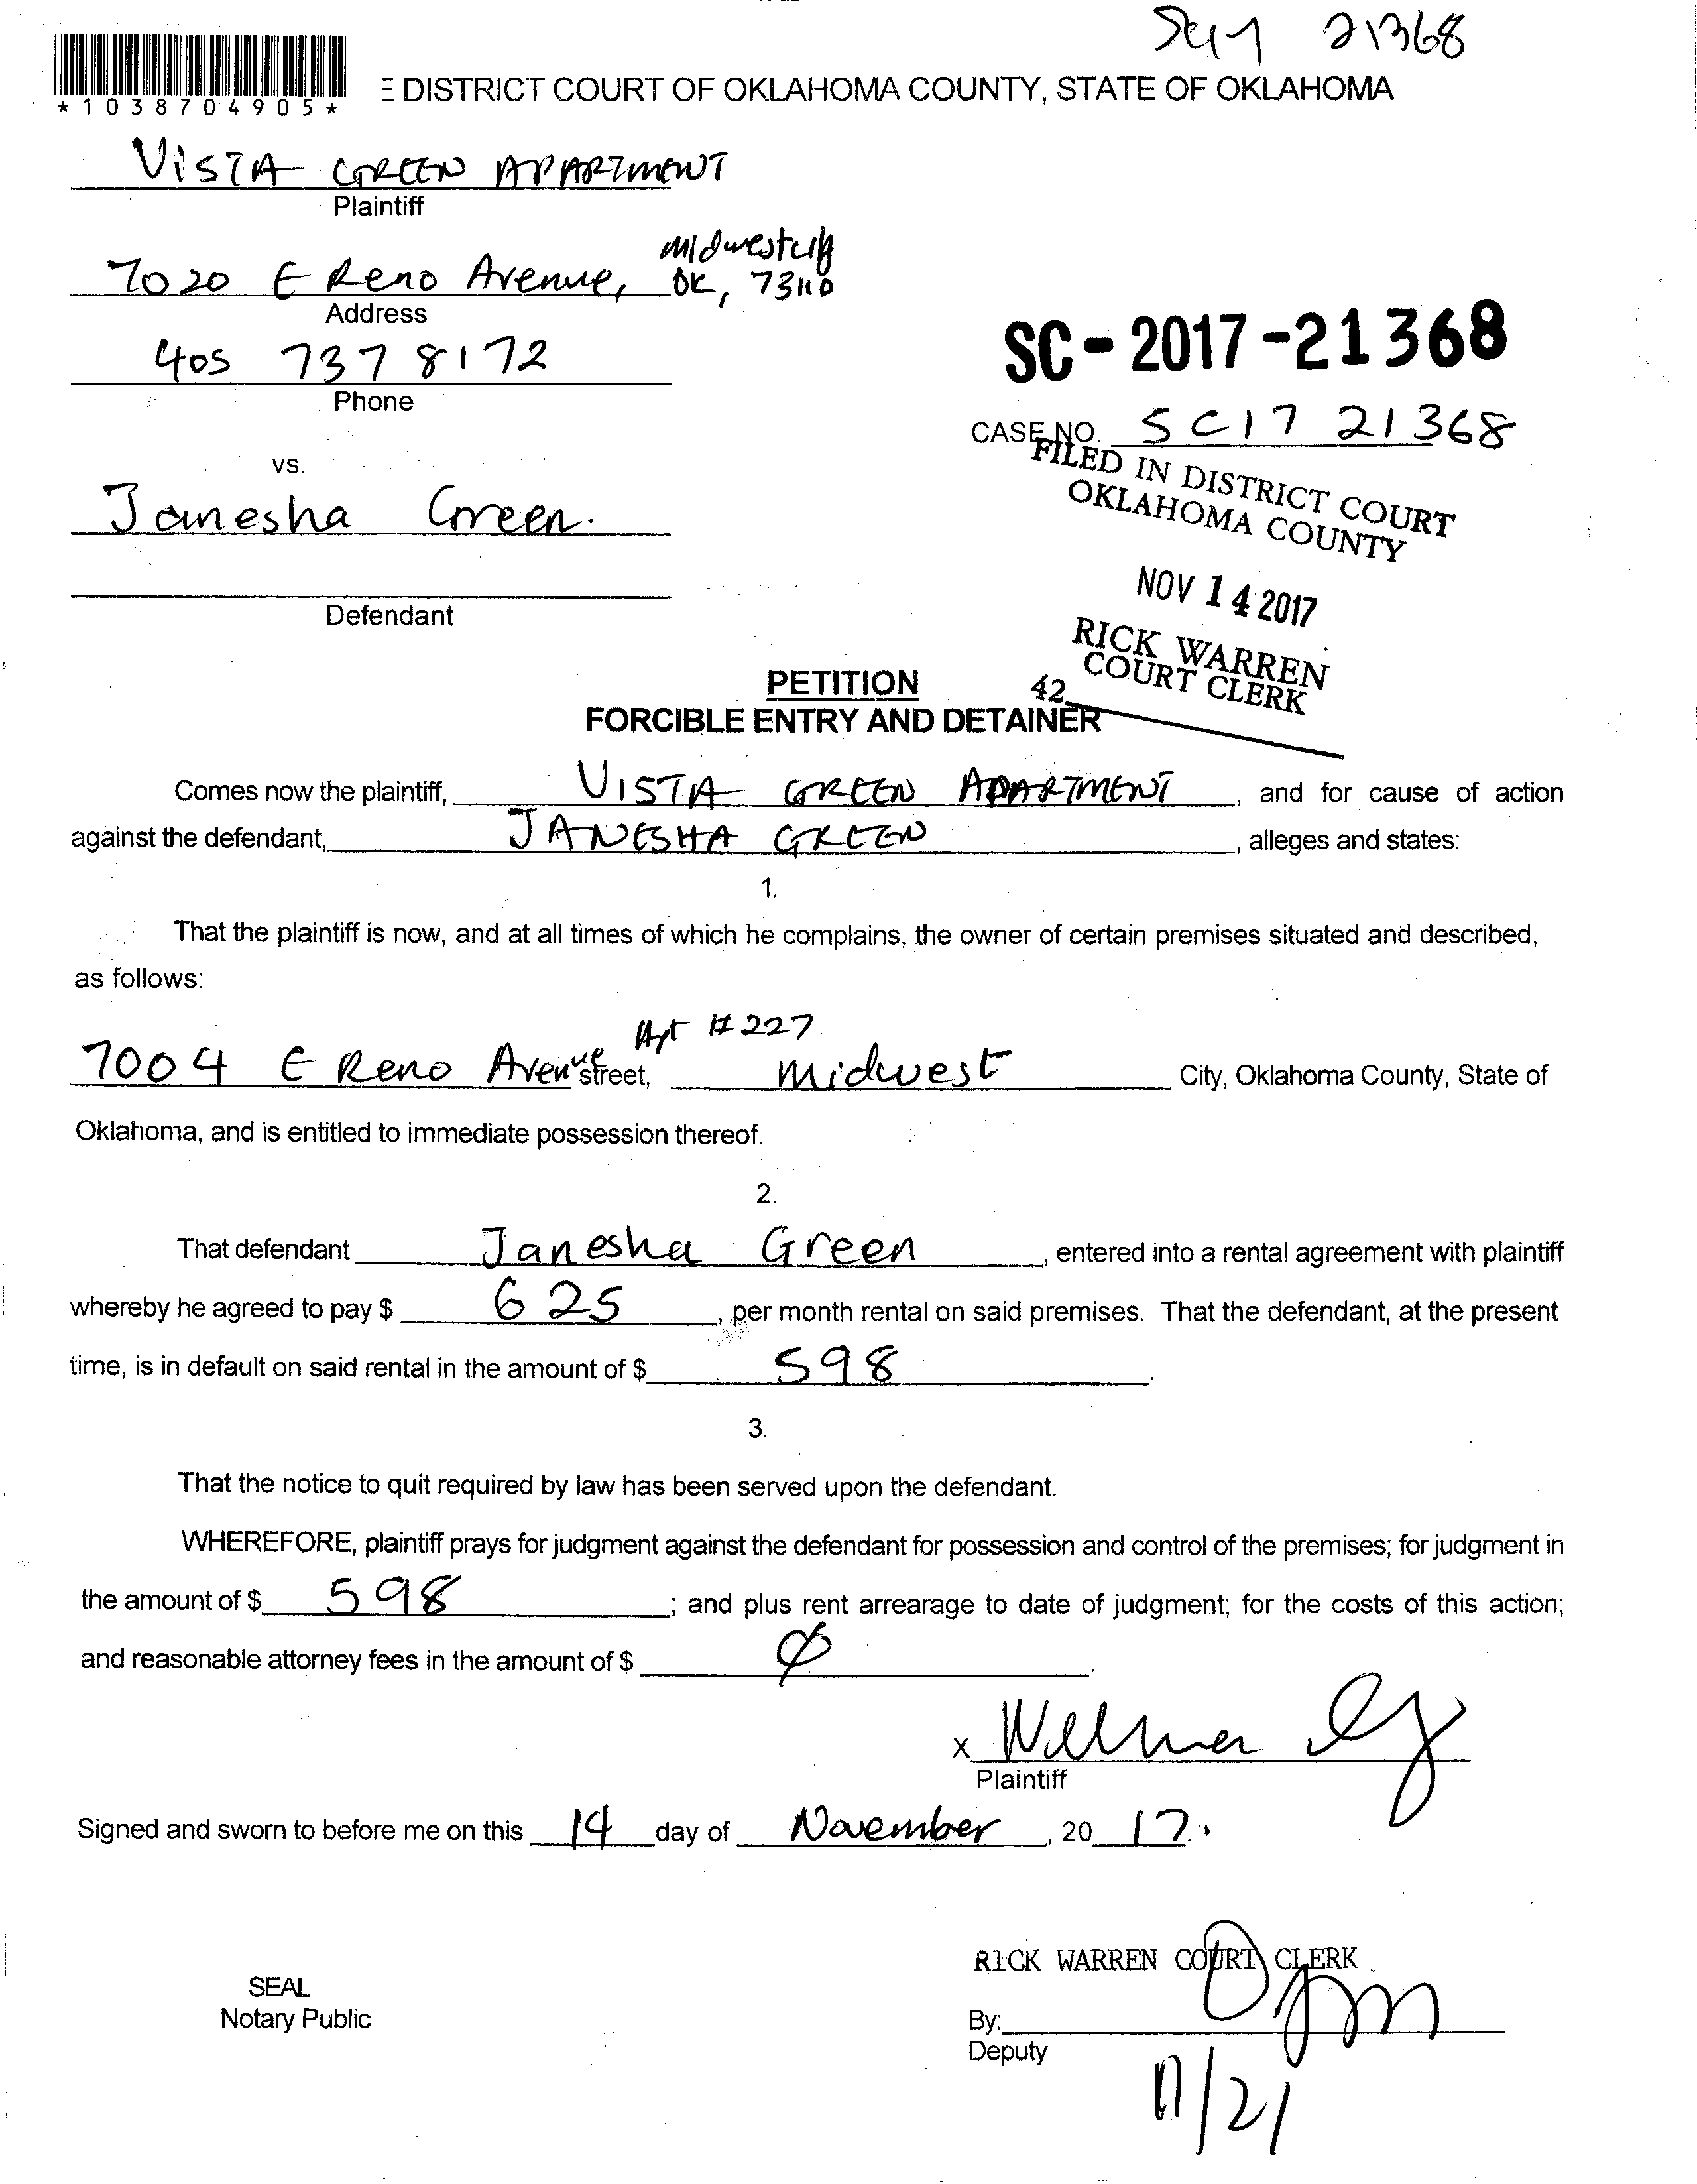 SC17 21368
*1038704905*
E DISTRICT COURT OF OKLAHOMA COUNTY, STATE OF OKLAHOMA
VISTA GREEN APARTMENT
Plaintiff
midwestcity
7020 E Reno Avenue, OK, 73110
Address
405 737 8172
Phone
SC-2017-21368
CASE NO. SC17 21368
vs.
FILED IN DISTRICT COURT
OKLAHOMA COUNTY
Janesha Green.
NOV 14 2017
Defendant
RICK WARREN
COURT CLERK
42
PETITION
FORCIBLE ENTRY AND DETAINER
Comes now the plaintiff, VISTA GREEN APARTMENT, and for cause of action
against the defendant, JANESHA GREEN, alleges and states:
1.
That the plaintiff is now, and at all times of which he complains, the owner of certain premises situated and described,
as follows:
Apt #227
7004 E Reno Avenue street, Midwest City, Oklahoma County, State of
Oklahoma, and is entitled to immediate possession thereof.
2.
That defendant Janesha Green, entered into a rental agreement with plaintiff
whereby he agreed to pay $ 625, per month rental on said premises. That the defendant, at the present
time, is in default on said rental in the amount of $ 598.
3.
That the notice to quit required by law has been served upon the defendant.
WHEREFORE, plaintiff prays for judgment against the defendant for possession and control of the premises; for judgment in
the amount of $ 598; and plus rent arrearage to date of judgment; for the costs of this action;
and reasonable attorney fees in the amount of $ Ø.
x Wilma
Plaintiff
Signed and sworn to before me on this 14 day of November, 2017.
RICK WARREN COURT CLERK
SEAL
Notary Public
By:
Deputy
11/21